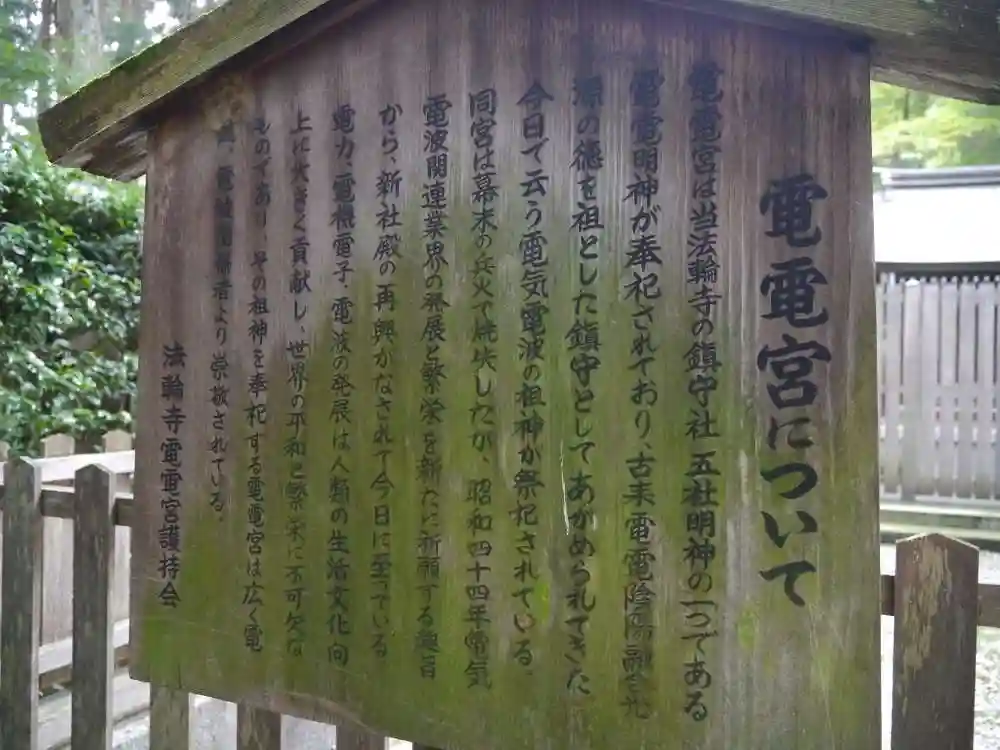 電電宮について
電電宮は当法輪寺の鎮守社五社明神の一つである
電電明神が奉祀されており、古来電電陰陽融合光
源の徳を祖とした鎮守としてあがめられてきた
今日で云う電気電波の祖神が祭祀されている。
同宮は幕末の兵火で焼失したが、昭和四十四年電気
電波関連業界の発展と繁栄を新たに祈願する趣旨
から、新社殿の再興がなされて今日に至っている
電力、電機電子、電波の発展は人類の生活文化向
上に大きく貢献し、世界の平和と繁栄に不可欠な
ものであり、その祖神を奉祀する電電宮は広く電
気、電波関係者より崇敬されている。
法輪寺電電宮護持会